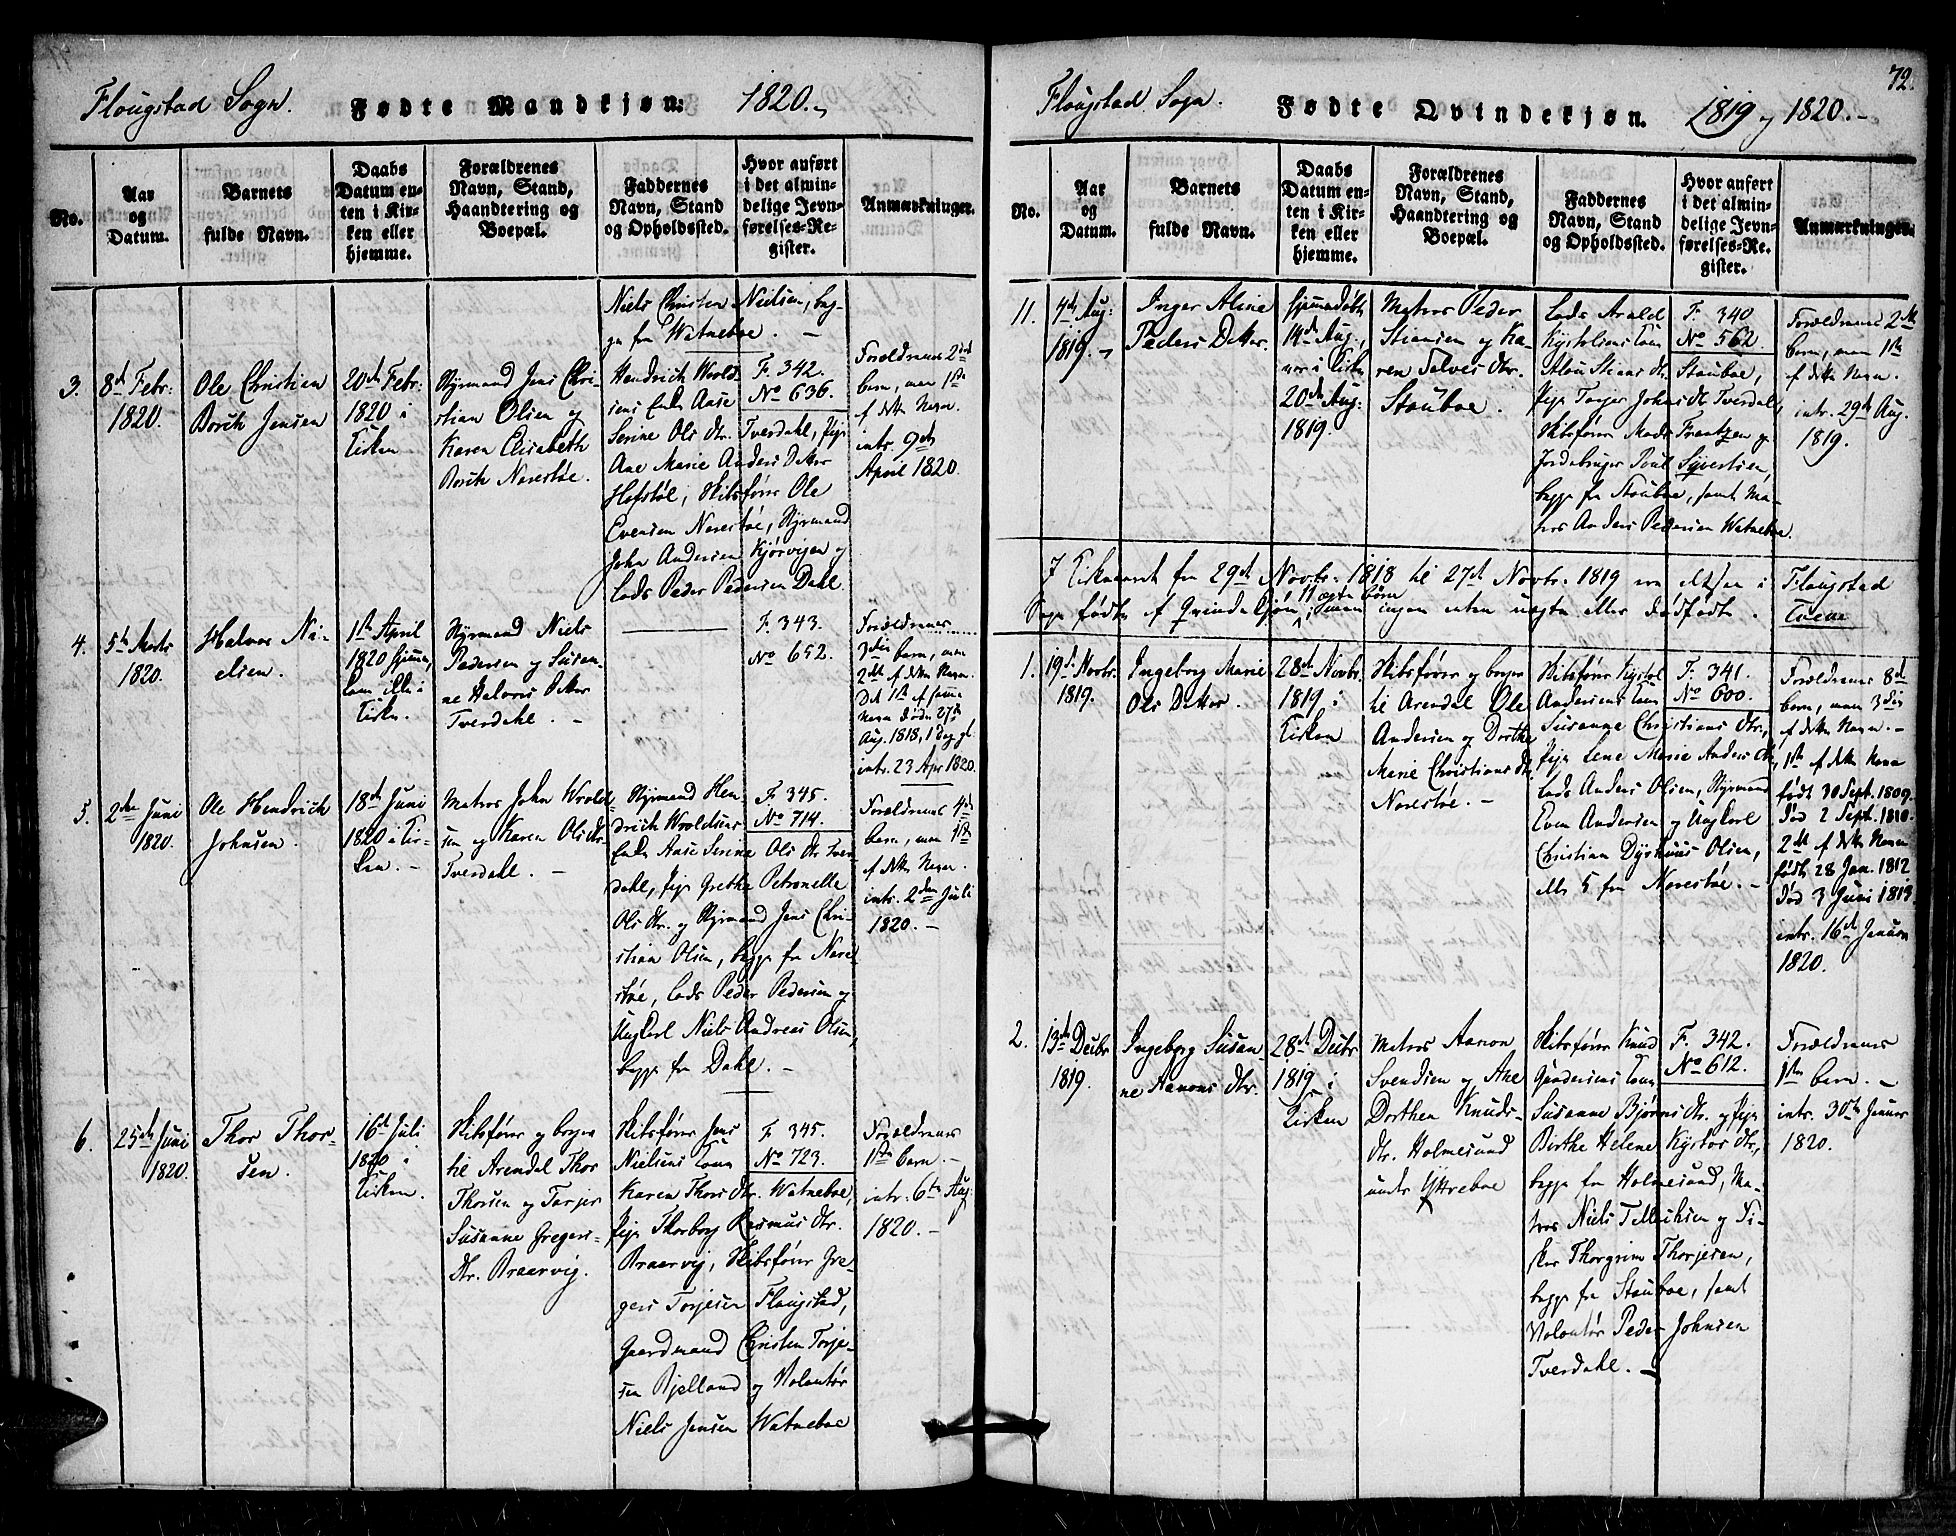 Flougstad Sogn. Fødte Mandkjøn: 1820.
No.
Aar og Datum.
Barnets fulde Navn.
Daabs Datum enten i Kirken eller hjemme.
Forældrenes Navn, Stand, Haandtering og Boepæl.
Faddernes Navn, Stand og Opholdssted.
Hvor anført i det almindelige Jevnførelses-Register.
Anmærkninger.
Niels Christen Nielsen, beg-
ge fra Watneboe. —
3.
8de Febr:
1820.
Ole Christian
Borith Jensen
20de Febr:
1820 i
Kirken
Styrmand Jens Chri-
stian Olsen og
Karen Elisabeth
Borith Narestøe.
Hendrich Wrold-
sens Enke Aase
Serine Ols Dtr. Tverdahl, Pige
Ane Marie Anders Datter
Hofstøl, Skibsfører Ole
Evensen Narestøe, Styrmand
John Andersen Kjørvigen og
Lods Peder Pedersen Dahl.
F. 342.
No 636.
Forældrenes 2det
barn, men 1ste
af dette Navn.
intr. 9de
April 1820.
4.
5te Marts
1820.
Halvor Ni-
elsen.
1ste April
1820 hjemme,
Kirken.
Styrmand Niels
Pedersen og Susan-
ne Halvors Datter
Tverdahl. —
F. 343.
No 652.
Forældrenes
3die barn, men
2det af dette Navn.
Det 1ste af samme
Navn døde 27de
Aug. 1818, 1 Dag gl.
intr. 23 Apr 1820.
5.
2den Juni
1820.
Ole Hendrich
Johnsen.
18de Juni
1820 i Kir-
ken. —
Matros John Wrold-
sen og Karen Ols Dtr.
Tverdahl. —
Styrmand Hen-
drich Wroldsens
Enke Aase Serine Ols Dtr Tver-
dahl, Pige Grethe Petronelle
Ols Dtr. og Styrmand Jens Chri-
stian Olsen, begge fra Nare-
støe, Lods Peder Pedersen og
Ungkarl Niels Andreas Olsen,
begge fra Dahl. —
F. 345.
No 714.
Forældrenes 4de
barn, men 1ste
af dette Navn.
intr. 2den Juli
1820. —
6.
25de Juni
1820.
Thor Thor-
sen.
16de Juli
1820 i
Kirken.
Skibsfører og borger
til Arendal Thor
Thorsen og Torjer
Susanne Gregers-
Dtr. Braarvig.
Skibsfører Jens
Nielsens Kone
Karen Thors Dtr. Watneboe,
Pige Thorborg Rasmus Dtr.
Braarvig, Skibsfører Gre-
gers Torjesen Flougstad,
Gaardmand Christen Torje-
sen Bjelland og Volontør
Niels Jensen Watneboe
F. 345.
No 723.
Forældrenes
1ste barn. —
intr. 6te Aug:
1820. —
72.
Flougstad Sogn. Fødte Qvindekjøn. 1819 og 1820. —
No.
Aar og Datum.
Barnets fulde Navn.
Daabs Datum enten i Kirken eller hjemme.
Forældrenes Navn, Stand, Haandtering og Boepæl.
Faddernes Navn, Stand og Opholdssted.
Hvor anført i det almindelige Jevnførelses-Register.
Anmærkninger.
11.
4de Aug:
1819. —
Inger Aline
Peders Datter.
hjemmedøbt
14de Aug.,
var i Kirken
20de Aug:
1819.
Matros Peder
Stiansen og Ka-
ren Salves Dtr.
Stauboe.
Lods Arald
Kystolsens Kone
Alou Stians Dtr.
Pige Torger Johns Dtr Tverdal,
Skibsfører Mads Frantzen og
Jordebruger Poul Syvertsen,
begge fra Stauboe, samt Ma-
tros Anders Pedersen Watneboe.
F. 340
No 562.
Stauboe,
Forældrenes 2det
barn, men 1ste
af dette Navn.
intr. 29de Aug.
1819.
I Kirkeaaret fra 29de Novbr. 1818 til 27de Novbr. 1819 ere altsaa i Flougstad
Sogn fødte af Qvindekjøn 11 ægte børn, men ingen enten uægte eller dødfødte. Tvene
1.
19de Novbr.
1819.
Ingeborg Marie
Ols Datter.
28de Novbr.
1819 i
Kirken
Skibsfører og borger
til Arendal Ole
Andersen og Dorthe
Marie Christians Dtr.
Narestøe. —
Skibsfører Kystol
Andersens Kone
Susanne Christians Dtr.,
Pige Lene Marie Anders Dtr,
Lods Anders Olsen, Styrmand
Even Andersen og Ungkarl
Christian Dyshuus Olsen,
alle 5 fra Narestøe. —
F. 341.
No 600.
Forældrenes 8de
barn, men 3die
af dette Navn. —
1ste af dette Navn
født 30 Sept. 1809.
død 2 Sept. 1810.
2det af dette Navn
født 28 Jan. 1812
død 3 Juni 1813
intr. 16de Januar
1820.
2.
13de Decbr
1819.
Ingeborg Susan-
ne Aanons Dtr.
28de Decbr
1819 i
Kirken
Matros Aanon
Svendsen og Ane
Dorthea Knuds-
Dtr. Holmesund
under Yttreboe
Skibsfører Knud
Gundersens Kone
Susanne Bjørns Dtr. og Pige
Birthe Helene Kystols Dtr.,
begge fra Holmesund, Ma-
tros Niels Tellefsen og Fi-
sker Thorgrim Thorjesen,
begge fra Stauboe, samt
Volontør Peder Johnsen
Tverdahl. —
F. 342.
No 612.
Forældrenes
1ste barn. —
intr. 30te Januar
1820.